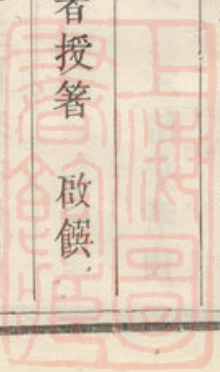 者授箸　啟饌
上海圖
書館藏